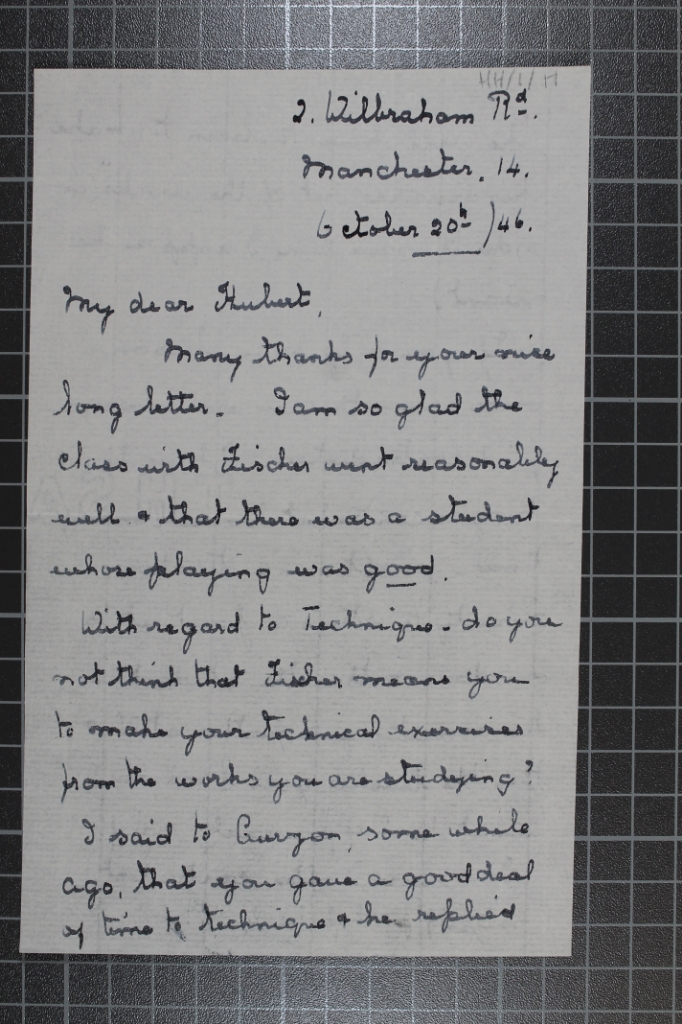 HH/1/17
2. Wilbraham Rd.
Manchester. 14.
October 20th /46.
My dear Hubert,
Many thanks for your nice
long letter. I am so glad the
class with Fischer went reasonably
well & that there was a student
whose playing was good.
With regard to Technique - do you
not think that Fischer means you
to make your technical exercises
from the works you are studying?
I said to Curzon, some while
ago, that you gave a good deal
of time to technique & he replied